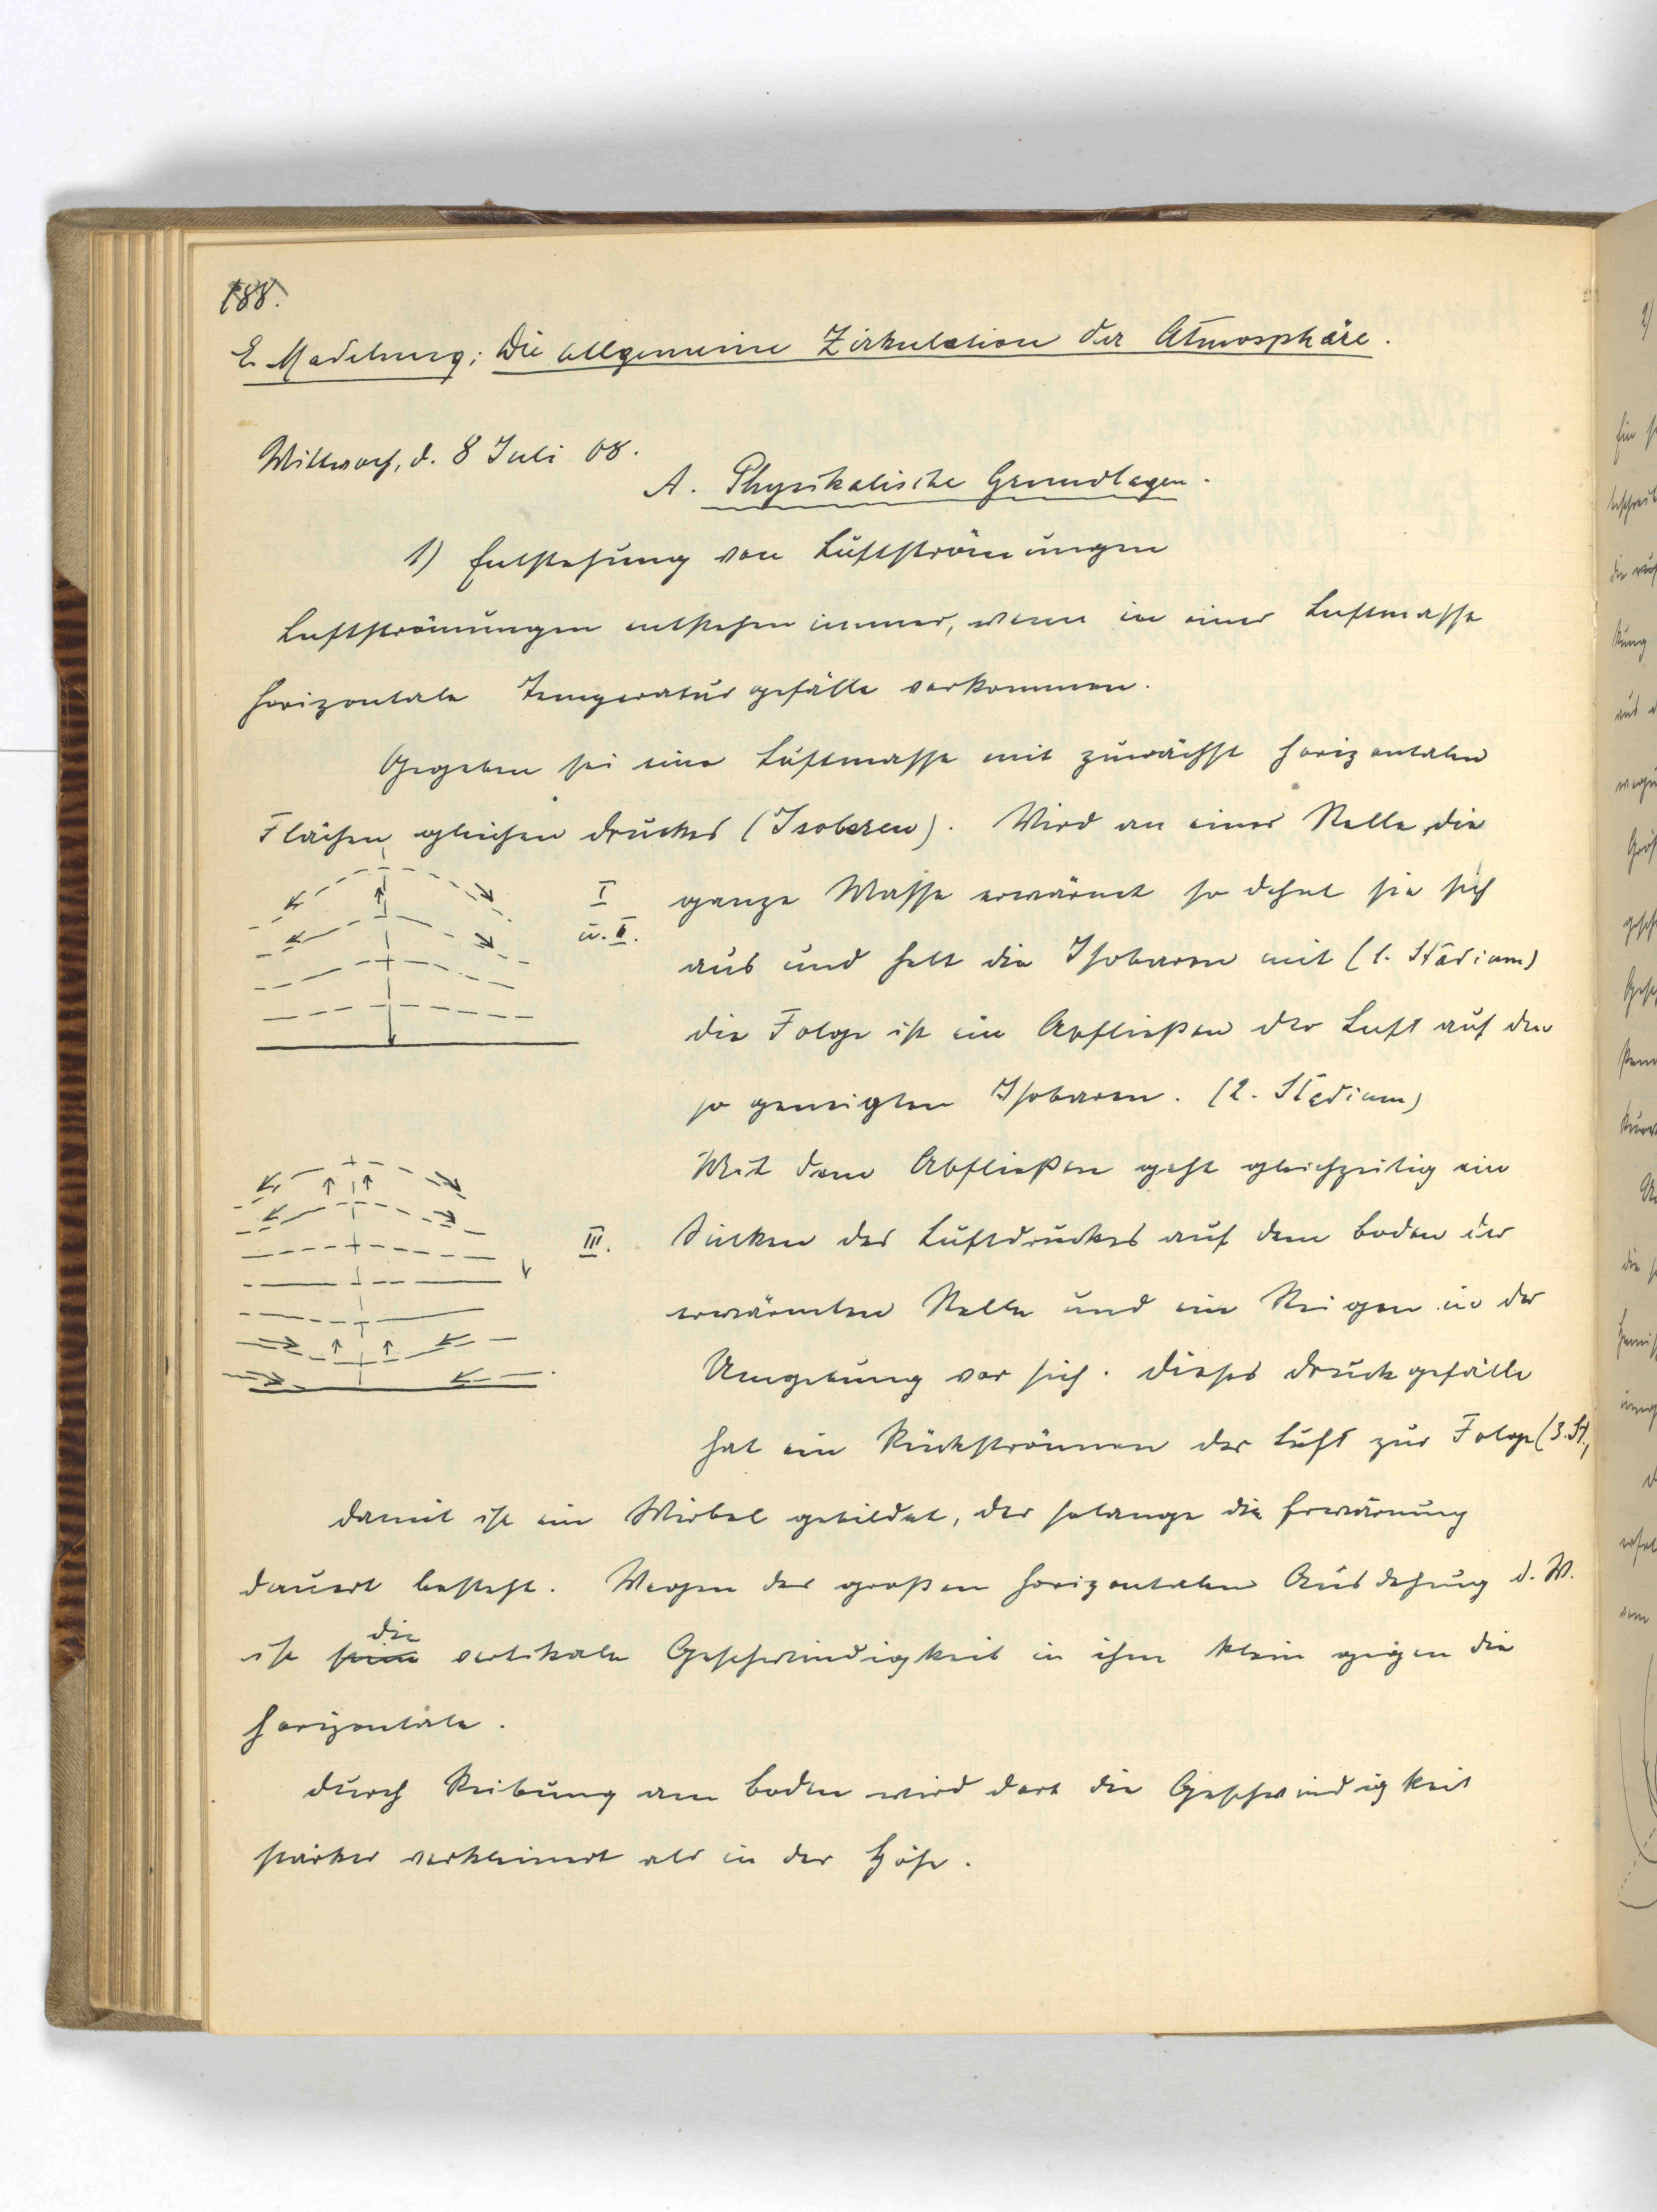 188.
E. Madelung: Die allgemeine Zirkulation der Atmosphäre.
Mittwoch, d. 8 Juli 08.
A. Physikalische Grundlagen.
1) Entstehung von Luftströmungen
Luftströmungen entstehen immer, wenn in einer Luftmasse
horizontale Temperaturgefälle vorkommen.
Gegeben sei eine Luftmasse mit zunächst horizontalen
Flächen gleichen Druckes (Isobaren). Wird an einer Stelle die
I ganze Masse erwärmt so dehnt sie sich
u. II. aus und hebt die Isobaren mit (1. Stadium)
die Folge ist ein Abfließen der Luft auf den
so geneigten Isobaren. (2. Stadium)
Mit dem Abfließen geht gleichzeitig ein
III. Sinken des Luftdruckes auf dem Boden der
erwärmten Stelle und ein Steigen in der
Umgebung vor sich. Dieses Druckgefälle
hat ein Rückströmen der Luft zur Folge (3. St.)
Damit ist ein Wirbel gebildet, der solange die Erwärmung
dauert besteht. Wegen der großen horizontalen Ausdehung d. W.
die
ist seine vertikale Geschwindigkeit in ihm klein gegen die
horizontale.
Durch Reibung am Boden wird dort die Geschwindigkeit
stärker verkleinert als in der Höhe.